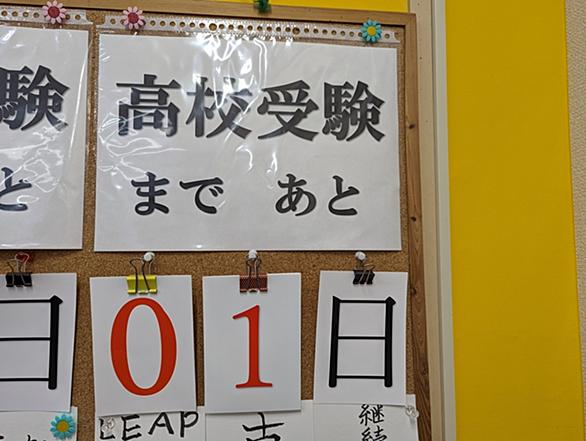 験
高校受験
と
まで あと
日
01日
LEAP
継続